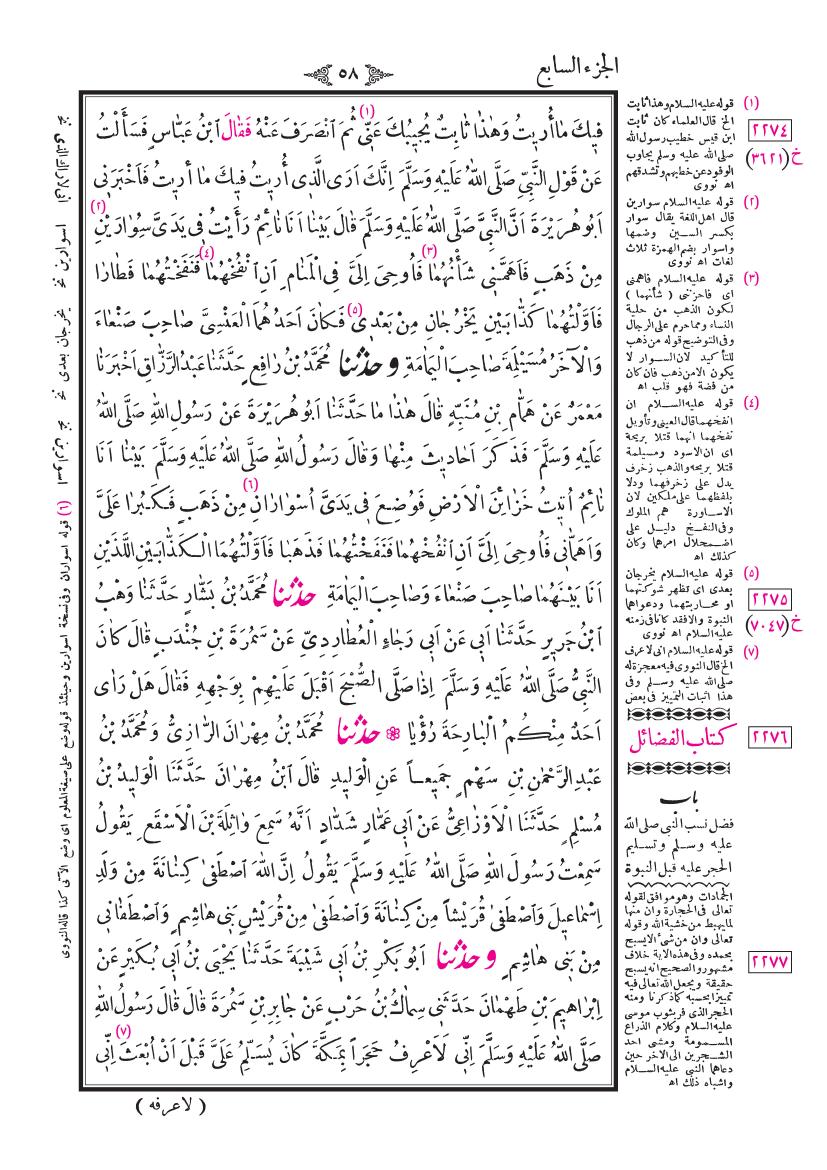 الجزء السابع
٥٨
فِيكَ مَا أُرِيتُ وَهٰذَا ثَابِتٌ يُجِيبُكَ عَنِّي (١) ثُمَّ انْصَرَفَ عَنْهُ فَقَالَ ابْنُ عَبَّاسٍ فَسَأَلْتُ
عَنْ قَوْلِ النَّبِيِّ صَلَّى اللهُ عَلَيْهِ وَسَلَّمَ إِنَّكَ أَرَى الَّذِي أُرِيتُ فِيكَ مَا أُرِيتُ فَأَخْبَرَنِي
أَبُو هُرَيْرَةَ أَنَّ النَّبِيَّ صَلَّى اللهُ عَلَيْهِ وَسَلَّمَ قَالَ بَيْنَا أَنَا نَائِمٌ رَأَيْتُ فِي يَدَيَّ سِوَارَيْنِ (٢)
مِنْ ذَهَبٍ فَأَهَمَّنِي شَأْنُهُمَا (٣) فَأُوحِيَ إِلَيَّ فِي الْمَنَامِ أَنِ انْفُخْهُمَا (٤) فَنَفَخْتُهُمَا فَطَارَا
فَأَوَّلْتُهُمَا كَذَّابَيْنِ يَخْرُجَانِ مِنْ بَعْدِي (٥) فَكَانَ أَحَدُهُمَا الْعَنْسِيَّ صَاحِبَ صَنْعَاءَ
وَالْآخَرُ مُسَيْلِمَةَ صَاحِبَ الْيَمَامَةِ وحدثنا مُحَمَّدُ بْنُ رَافِعٍ حَدَّثَنَا عَبْدُ الرَّزَّاقِ أَخْبَرَنَا
مَعْمَرٌ عَنْ هَمَّامِ بْنِ مُنَبِّهٍ قَالَ هٰذَا مَا حَدَّثَنَا أَبُو هُرَيْرَةَ عَنْ رَسُولِ اللهِ صَلَّى اللهُ
عَلَيْهِ وَسَلَّمَ فَذَكَرَ أَحَادِيثَ مِنْهَا وَقَالَ رَسُولُ اللهِ صَلَّى اللهُ عَلَيْهِ وَسَلَّمَ بَيْنَا أَنَا
نَائِمٌ أُتِيتُ خَزَائِنَ الْأَرْضِ فَوُضِعَ فِي يَدَيَّ أُسْوَارَانِ (٦) مِنْ ذَهَبٍ فَكَبُرَا عَلَيَّ
وَأَهَمَّانِي فَأُوحِيَ إِلَيَّ أَنِ انْفُخْهُمَا فَنَفَخْتُهُمَا فَذَهَبَا فَأَوَّلْتُهُمَا الْكَذَّابَيْنِ اللَّذَيْنِ
أَنَا بَيْنَهُمَا صَاحِبَ صَنْعَاءَ وَصَاحِبَ الْيَمَامَةِ حدثنا مُحَمَّدُ بْنُ بَشَّارٍ حَدَّثَنَا وَهْبُ
ابْنُ جَرِيرٍ حَدَّثَنَا أَبِي عَنْ أَبِي رَجَاءٍ الْعُطَارِدِيِّ عَنْ سَمُرَةَ بْنِ جُنْدَبٍ قَالَ كَانَ
النَّبِيُّ صَلَّى اللهُ عَلَيْهِ وَسَلَّمَ إِذَا صَلَّى الصُّبْحَ أَقْبَلَ عَلَيْهِمْ بِوَجْهِهِ فَقَالَ هَلْ رَأَى
أَحَدٌ مِنْكُمُ الْبَارِحَةَ رُؤْيَا حدثنا مُحَمَّدُ بْنُ مِهْرَانَ الرَّازِيُّ وَمُحَمَّدُ بْنُ
عَبْدِ الرَّحْمٰنِ بْنِ سَهْمٍ جَمِيعاً عَنِ الْوَلِيدِ قَالَ ابْنُ مِهْرَانَ حَدَّثَنَا الْوَلِيدُ بْنُ
مُسْلِمٍ حَدَّثَنَا الْأَوْزَاعِيُّ عَنْ أَبِي عَمَّارٍ شَدَّادٍ أَنَّهُ سَمِعَ وَاثِلَةَ بْنَ الْأَسْقَعِ يَقُولُ
سَمِعْتُ رَسُولَ اللهِ صَلَّى اللهُ عَلَيْهِ وَسَلَّمَ يَقُولُ إِنَّ اللهَ اصْطَفَى كِنَانَةَ مِنْ وَلَدِ
إِسْمَاعِيلَ وَاصْطَفَى قُرَيْشاً مِنْ كِنَانَةَ وَاصْطَفَى مِنْ قُرَيْشٍ بَنِي هَاشِمٍ وَاصْطَفَانِي
مِنْ بَنِي هَاشِمٍ وحدثنا أَبُو بَكْرِ بْنُ أَبِي شَيْبَةَ حَدَّثَنَا يَحْيَى بْنُ أَبِي بُكَيْرٍ عَنْ
إِبْرَاهِيمَ بْنِ طَهْمَانَ حَدَّثَنِي سِمَاكُ بْنُ حَرْبٍ عَنْ جَابِرِ بْنِ سَمُرَةَ قَالَ قَالَ رَسُولُ اللهِ
صَلَّى اللهُ عَلَيْهِ وَسَلَّمَ إِنِّي لَأَعْرِفُ حَجَراً بِمَكَّةَ كَانَ يُسَلِّمُ عَلَيَّ قَبْلَ أَنْ أُبْعَثَ (٧) إِنِّي
( لاعرفه )
(١) قوله عليه السلام وهذا ثابت
الخ قال العلماء كان ثابت
ابن قيس خطيب رسول الله
صلى الله عليه وسلم يجاوب
الوفود عن خطبهم وتشدقهم
اه نووى
(٢) قوله عليه السلام سوارين
قال اهل اللغة يقال سوار
بكسر السين وضمها
واسوار بضم الهمزة ثلاث
لغات اه نووى
(٣) قوله عليه السلام فاهمنى
اى فاحزننى ( شأنهما )
لكون الذهب من حلية
النساء ومما حرم على الرجال
وفى التوضيح قوله من ذهب
للتأكيد لان السوار لا
يكون الا من ذهب فان كان
من فضة فهو قلب اه
(٤) قوله عليه السلام ان
انفخهما قال العينى وتأويل
نفخهما انهما قتلا بريحة
اى ان الاسود ومسيلمة
قتلا بريحه والذهب زخرف
يدل على زخرفهما ودلا
بلفظهما على ملكين لان
الاساورة هم الملوك
وفى النفخ دليل على
اضمحلال امرهما وكان
كذلك اه
(٥) قوله عليه السلام يخرجان
بعدى اى تظهر شوكتهما
او محاربتهما ودعواهما
النبوة والا فقد كانا فى زمنه
عليه السلام اه نووى
(٧) قوله عليه السلام انى لاعرف
الخ قال النووى فيه معجزة له
صلى الله عليه وسلم وفى
هذا اثبات التمييز فى بعض
كتاب الفضائل
باب
فضل نسب النبي صلى الله
عليه وسلم وتسليم
الحجر عليه قبل النبوة
الجمادات وهو موافق لقوله
تعالى فى الحجارة وان منها
لما يهبط من خشية الله وقوله
تعالى وان من شئ الا يسبح
بحمده وفى هذه الآية خلاف
مشهور والصحيح انه يسبح
حقيقة ويجعل الله تعالى فيه
تمييزا بحسبه كما ذكرنا ومنه
الحجر الذى فر بثوب موسى
عليه السلام وكلام الذراع
المسمومة ومشى احد
الشجرتين الى الآخر حين
دعاهما النبى عليه السلام
واشباه ذلك اه
٢٢٧٤
خ (٣٦٢١)
٢٢٧٥
خ (٧٠٤٧)
٢٢٧٦
٢٢٧٧
اسوارين نخ
يخرجان بعدى نخ
(٦) قوله اسواران وفى نسخة اسوارين وحينئذ قوله وضع على صيغة المعلوم اى وضع الآتى كذا قاله النووى